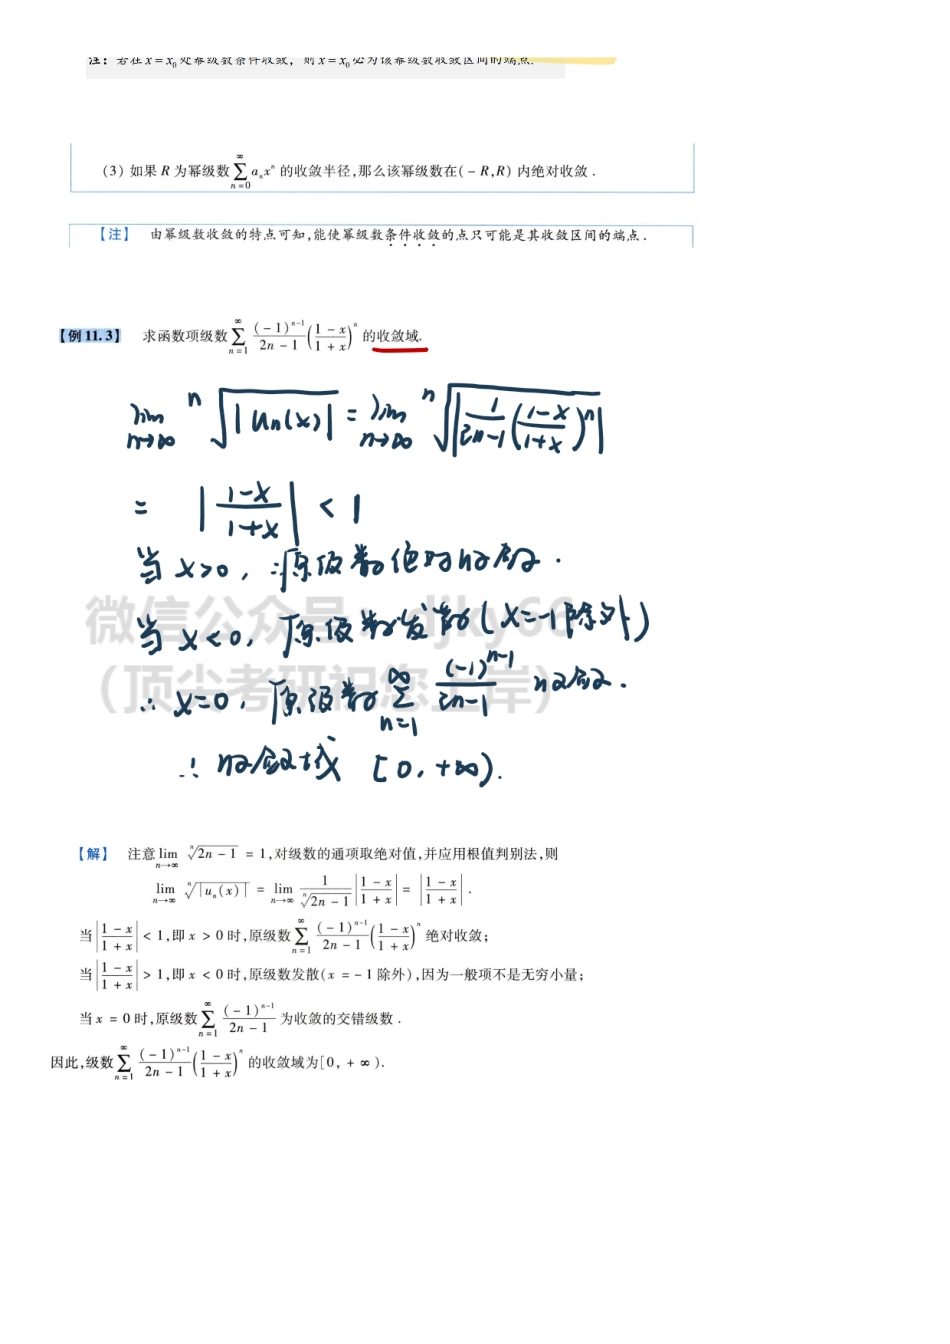 注：若在 x = x₀ 处幂级数条件收敛，则 x = x₀ 必为该幂级数收敛区间的端点.
(3) 如果 R 为幂级数 $\sum_{n=0}^{\infty} a_n x^n$ 的收敛半径,那么该幂级数在(-R,R) 内绝对收敛.
【注】 由幂级数收敛的特点可知,能使幂级数条件收敛的点只可能是其收敛区间的端点.
【例 11.3】 求函数项级数 $\sum_{n=1}^{\infty} \frac{(-1)^{n-1}}{2n-1}\left(\frac{1-x}{1+x}\right)^n$ 的收敛域.
$\lim_{n\to\infty} \sqrt[n]{|u_n(x)|} = \lim_{n\to\infty} \sqrt[n]{\left|\frac{1}{2n-1}\left(\frac{1-x}{1+x}\right)^n\right|}$
$= \left|\frac{1-x}{1+x}\right| < 1$
当 x>0, ∴原级数绝对收敛.
当 x<0, 原级数发散(x=-1除外)
∴ x=0, 原级数 $\sum_{n=1}^{\infty} \frac{(-1)^{n-1}}{2n-1}$ 收敛.
∴ 收敛域 [0,+∞).
微信公众号：djky66
(顶尖考研祝您上岸)
【解】 注意 $\lim_{n\to\infty} \sqrt[n]{2n-1} = 1$,对级数的通项取绝对值,并应用根值判别法,则
$\lim_{n\to\infty} \sqrt[n]{|u_n(x)|} = \lim_{n\to\infty} \frac{1}{\sqrt[n]{2n-1}} \left|\frac{1-x}{1+x}\right| = \left|\frac{1-x}{1+x}\right|$.
当 $\left|\frac{1-x}{1+x}\right| < 1$,即 x > 0 时,原级数 $\sum_{n=1}^{\infty} \frac{(-1)^{n-1}}{2n-1}\left(\frac{1-x}{1+x}\right)^n$ 绝对收敛;
当 $\left|\frac{1-x}{1+x}\right| > 1$,即 x < 0 时,原级数发散(x = -1 除外),因为一般项不是无穷小量;
当 x = 0 时,原级数 $\sum_{n=1}^{\infty} \frac{(-1)^{n-1}}{2n-1}$ 为收敛的交错级数.
因此,级数 $\sum_{n=1}^{\infty} \frac{(-1)^{n-1}}{2n-1}\left(\frac{1-x}{1+x}\right)^n$ 的收敛域为[0, +∞).